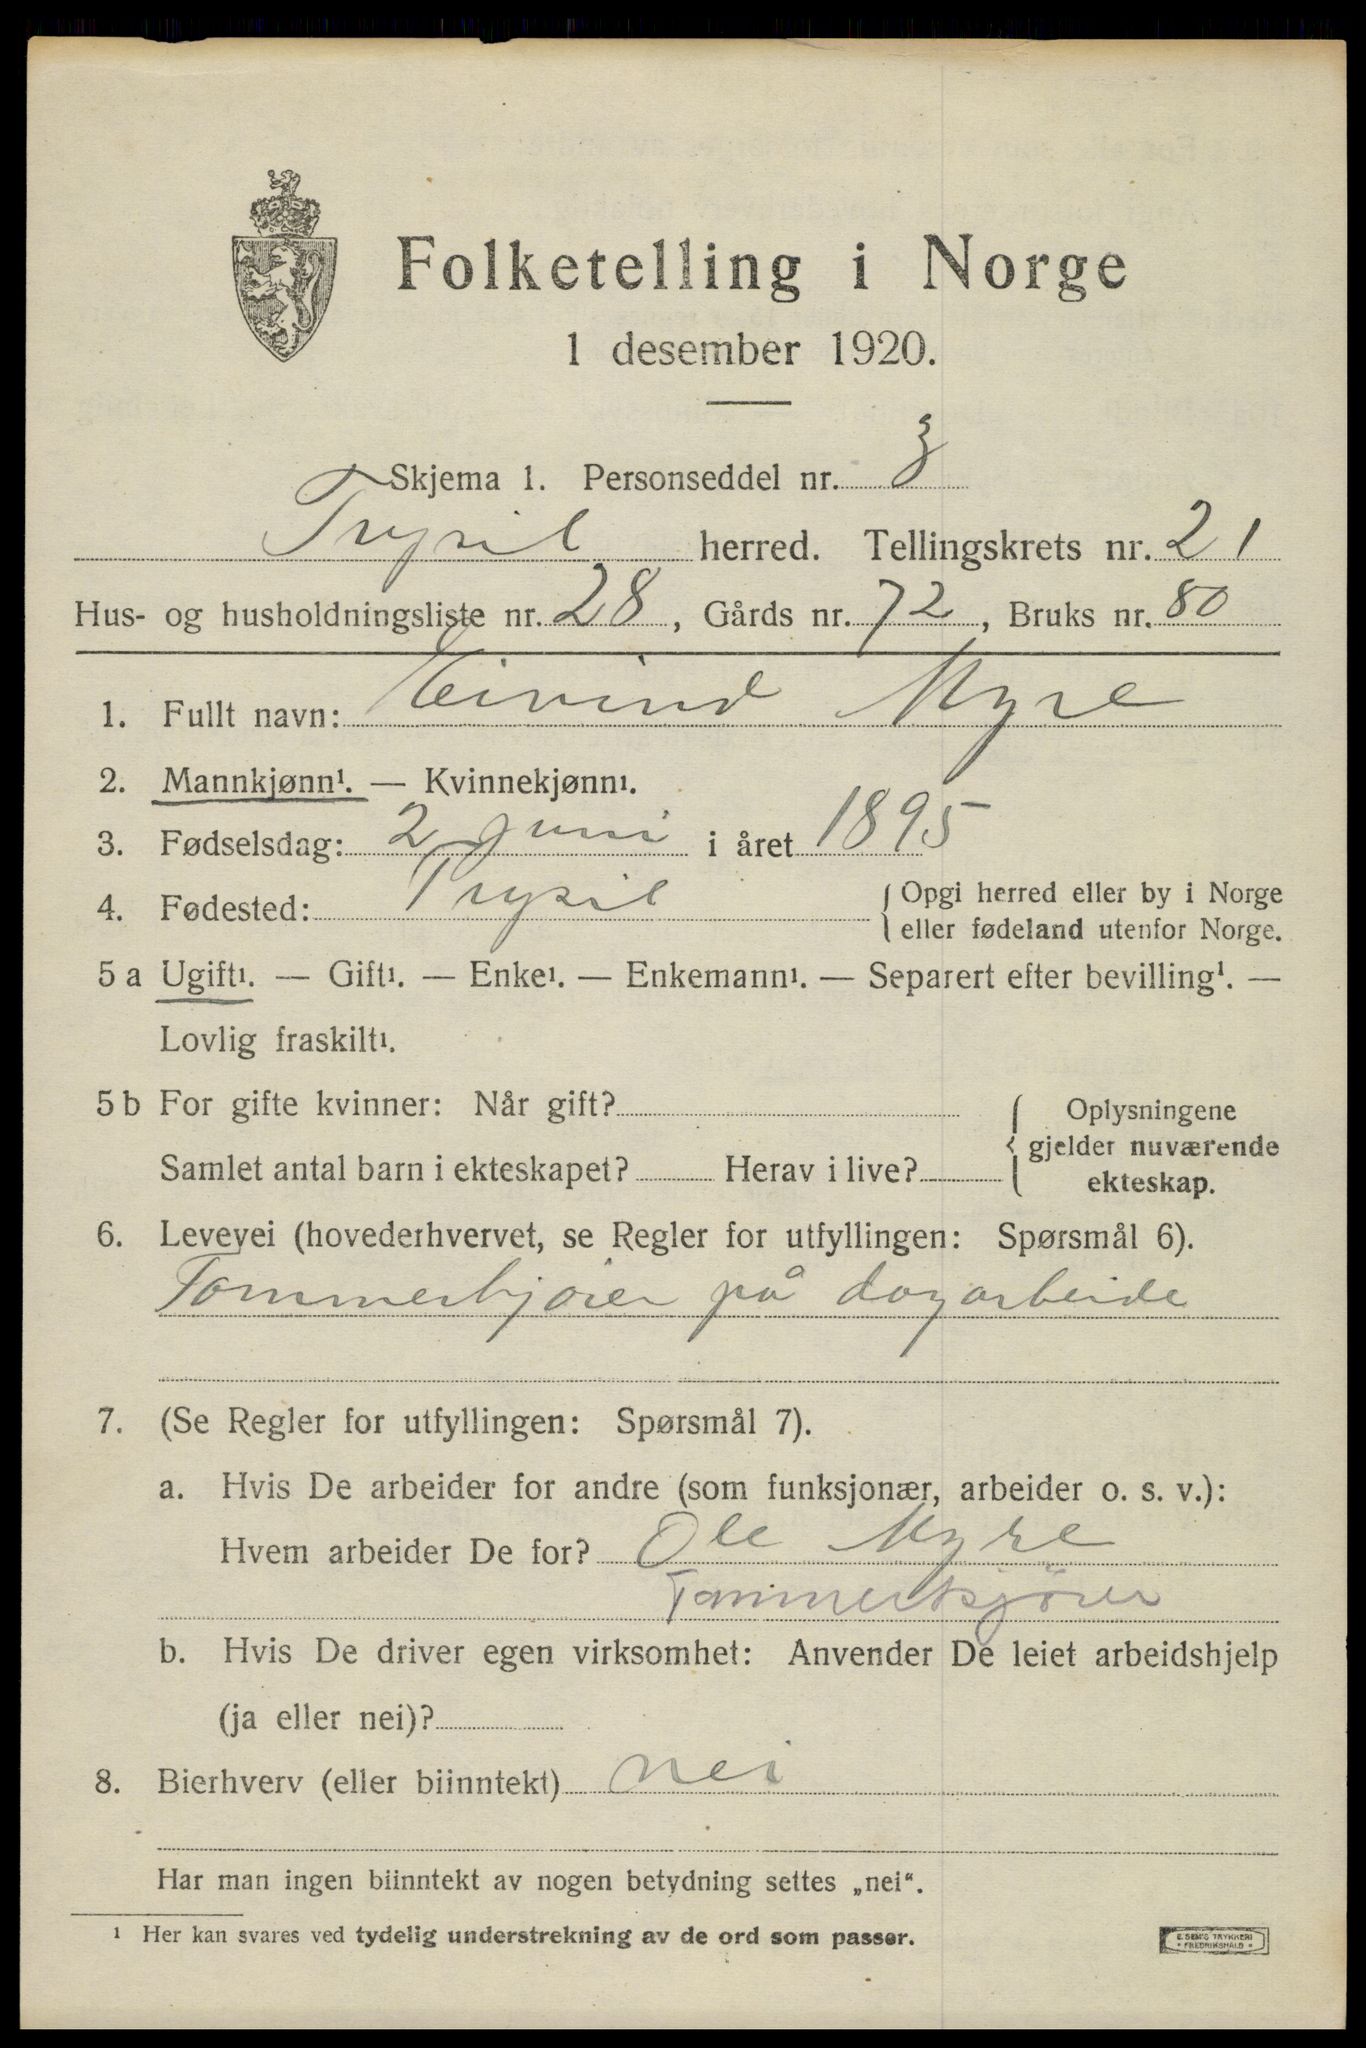 Folketelling i Norge
1 desember 1920.
Skjema 1. Personseddel nr. 3
Trysil herred. Tellingskrets nr. 21
Hus- og husholdningsliste nr. 28, Gårds nr. 72, Bruks nr. 80
1. Fullt navn: Eivind Myre
2. Mannkjønn¹. — Kvinnekjønn¹.
3. Fødselsdag: 2 Juni i året 1895
4. Fødested: Trysil
{ Opgi herred eller by i Norge
eller fødeland utenfor Norge.
5 a Ugift¹. — Gift¹. — Enke¹. — Enkemann¹. — Separert efter bevilling¹. —
Lovlig fraskilt¹.
5 b For gifte kvinner: Når gift?
Samlet antal barn i ekteskapet? Herav i live?
{ Oplysningene
gjelder nuværende
ekteskap.
6. Levevei (hovederhvervet, se Regler for utfyllingen: Spørsmål 6).
Tømmerkjører på dagarbeide
7. (Se Regler for utfyllingen: Spørsmål 7).
a. Hvis De arbeider for andre (som funksjonær, arbeider o. s. v.):
Hvem arbeider De for? Ole Myre
Tømmerkjører
b. Hvis De driver egen virksomhet: Anvender De leiet arbeidshjelp
(ja eller nei)?
8. Bierhverv (eller biinntekt) nei
Har man ingen biinntekt av nogen betydning settes „nei“.
¹ Her kan svares ved tydelig understrekning av de ord som passer.
E. SEM'S TRYKKERI
• FREDRIKSHALD •